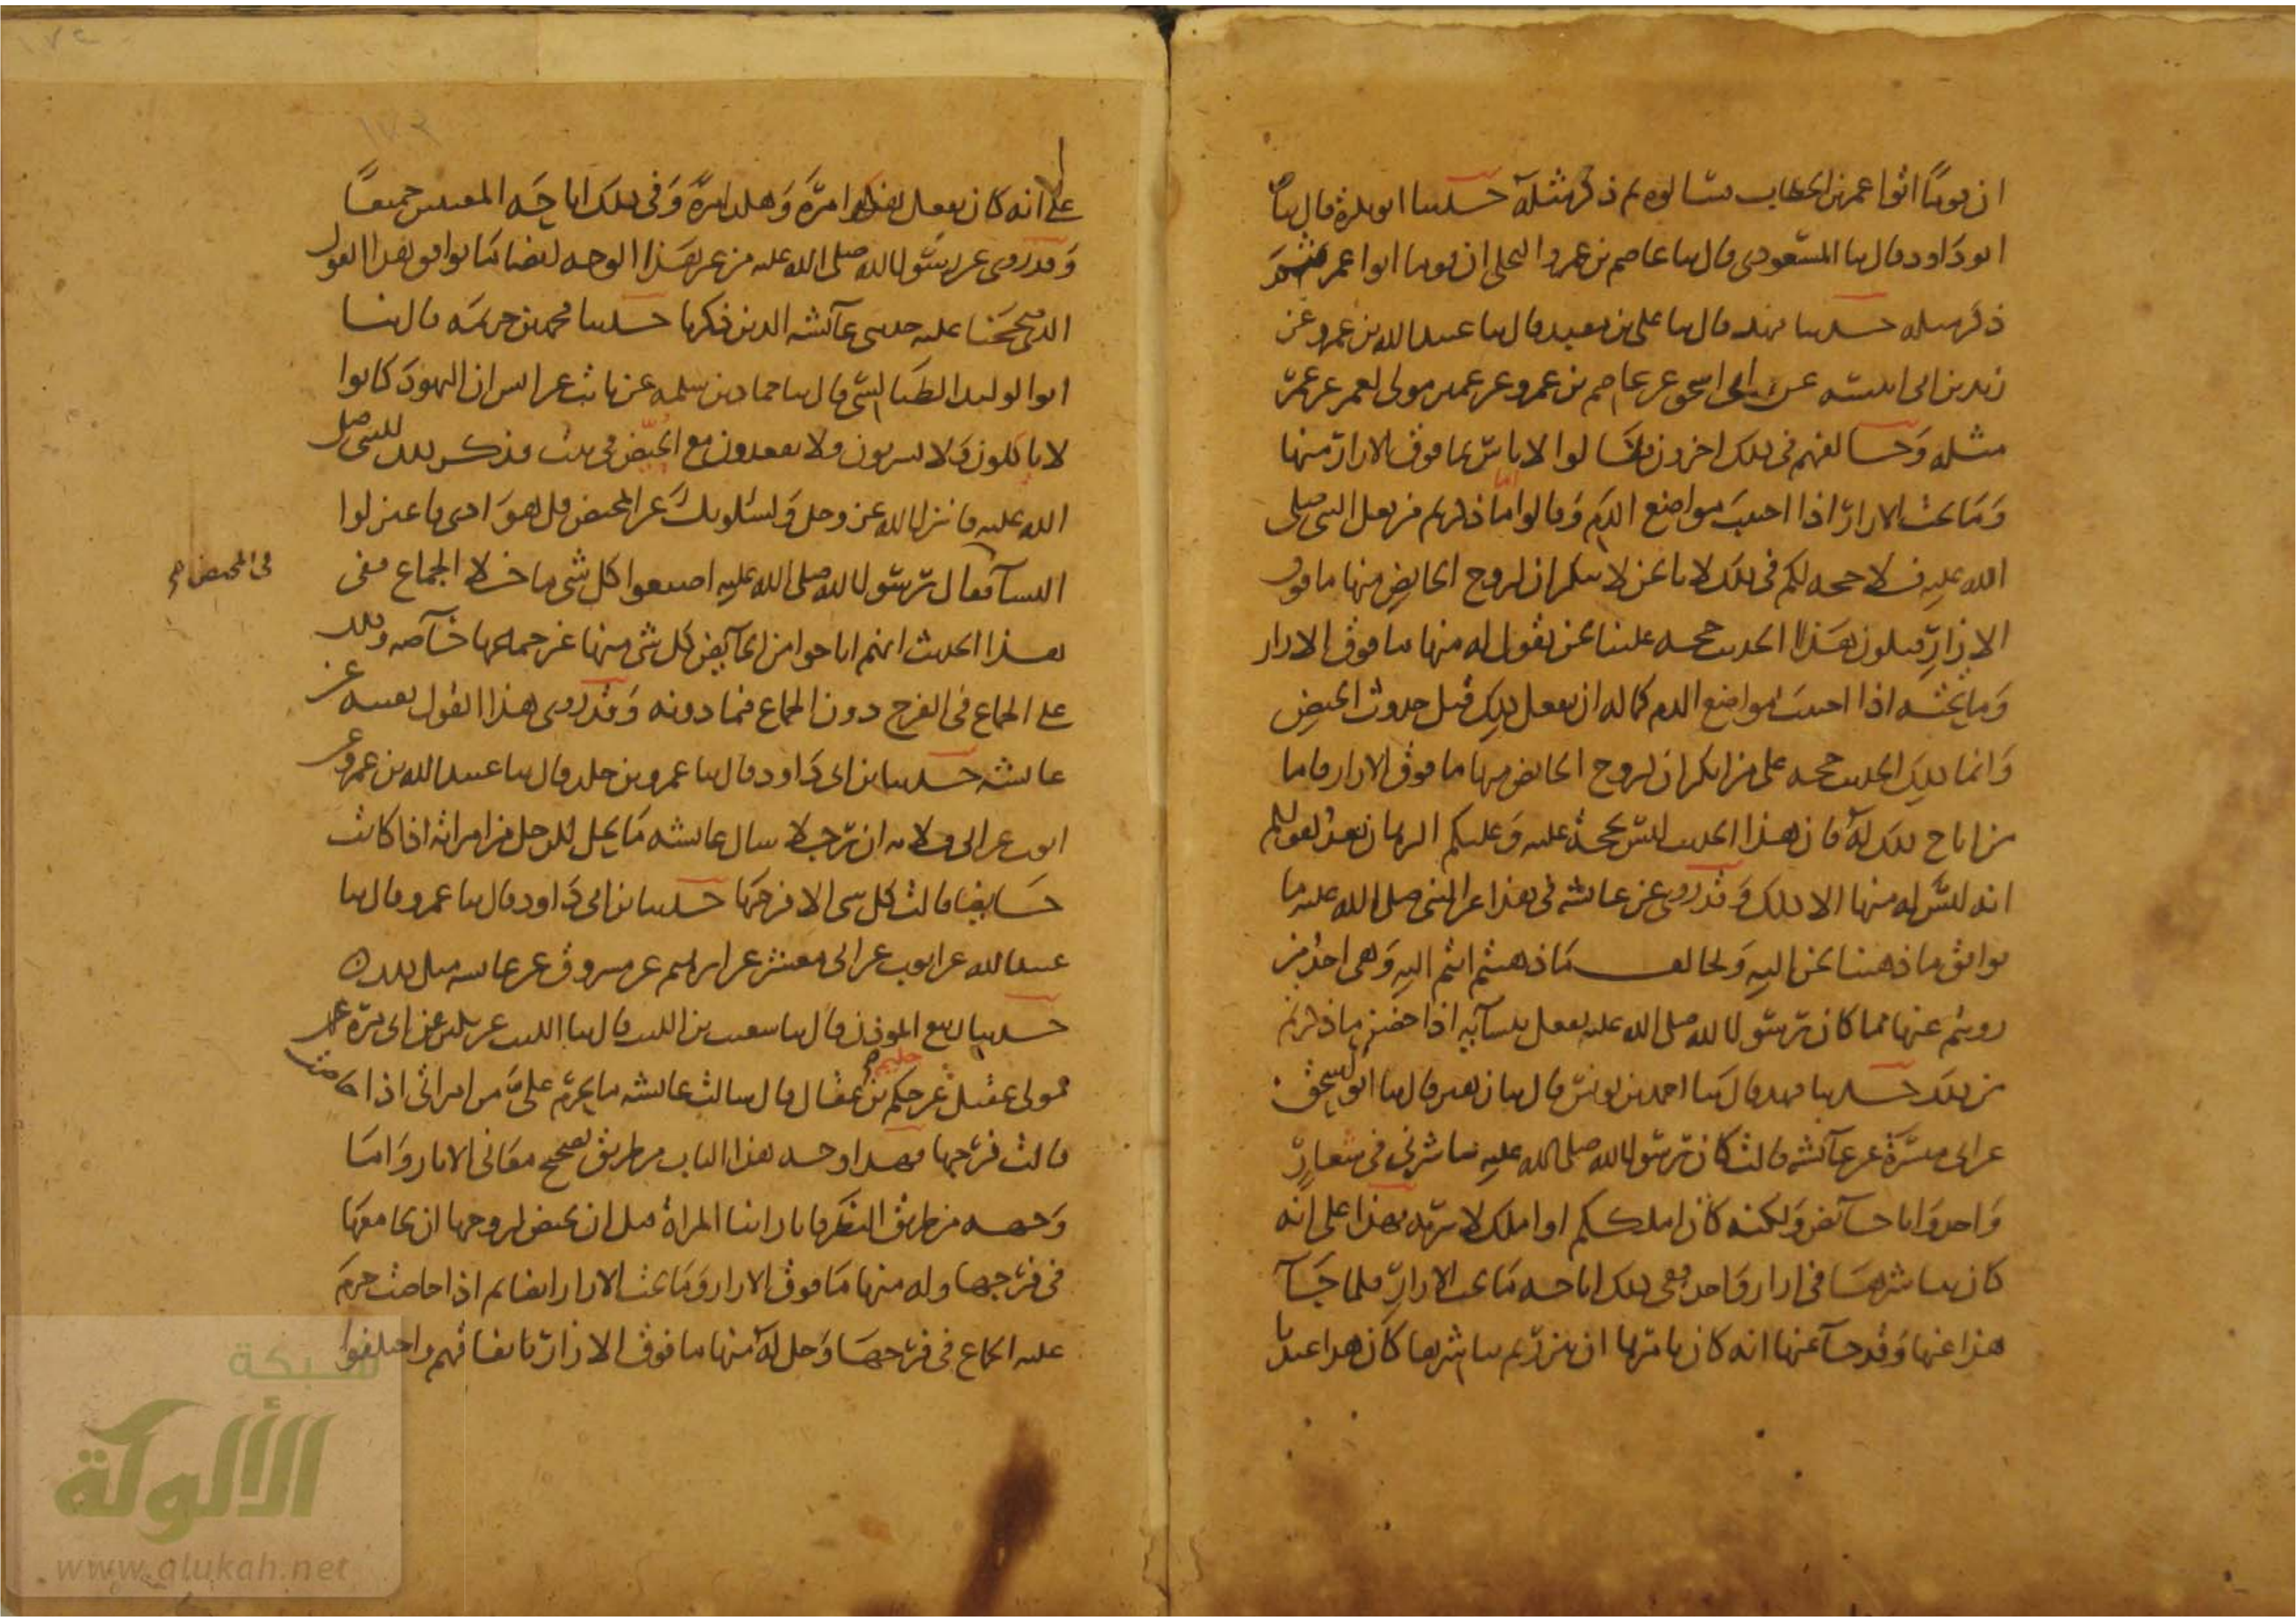 ان قوما اتوا عمر بن الخطاب فسالوه ثم ذكر مثله حدثنا ابو بكرة قال ثنا
ابو داود قال ثنا المسعودي قال ثنا عاصم بن عمرو البجلي ان قوما اتوا عمر
ذكر مثله حدثنا فهد قال ثنا علي بن معبد قال ثنا عبيد الله بن عمرو عن
زيد بن ابي انيسه عن ابي اسحق عن عاصم بن عمرو عن عمير مولى لعمر عن عمر
مثله وخالفهم في ذلك اخرون فقالوا لا باس بما فوق الازار منها
وما تحت الازار اذا اجتنب مواضع الدم وقالوا اما ذكرتم من فعل النبي صلى
الله عليه فلا حجه لكم في ذلك لانا نحن لا ننكر ان لزوج الحايض منها ما فوق
الازار فيكون هذا الحديث حجه علينا نحن نقول له منها ما فوق الازار
وما تحته اذا اجتنب مواضع الدم كما له ان يفعل ذلك قبل حدوث الحيض
وانما ذلك الحديث حجه على من انكر ان لزوج الحايض منها ما فوق الازار فاما
من اباح ذلك له فان هذا الحديث ليس بحجة عليه وعليكم البرهان بعد لقولكم
انه ليس له منها الا ذلك وقد روي عن عائشه في هذا عن النبي صلى الله عليه ما
يوافق ما ذهبنا نحن اليه ويخالف ما ذهبتم انتم اليه وهي احد من
رويتم عنها مما كان رسول الله صلى الله عليه يفعل بنسآيه اذا حضن ما ذكرتم
من ذلك حدثنا فهد قال ثنا احمد بن يونس قال ثنا زهير قال ثنا ابو اسحق
عن ابي ميسرة عن عآئشه قالت كان رسول الله صلى الله عليه يباشرني في شعار
واحد وانا حآئض ولكنه كان املككم او املك لاربه فهذا على انه
كان يباشرها في ازار واحد ففي ذلك اباحه ما تحت الازار فلما جآ
هذا عنها وقد جآ عنها انه كان يامرها ان تتزر ثم يباشرها كان هذا عندنا
على انه كان يفعل هكذا مرة وهكذا مرة وفي ذلك اباحه المعنيين جميعا
وقد روي عن رسول الله صلى الله عليه من غير هذا الوجه ايضا ما يوافق هذا القول
الذي صححنا عليه حديثي عآئشه الذين ذكرنا حدثنا محمد بن خزيمه قال ثنا
ابو الوليد الطيالسي قال ثنا حماد بن سلمه عن ثابت عن انس ان اليهود كانوا
لا ياكلون ولا يشربون ولا يقعدون مع الحيض في بيت فذكر ذلك للنبي صلى
الله عليه فانزل الله عز وجل ويسئلونك عن المحيض قل هو اذى فاعتزلوا
النسآ فقال رسول الله صلى الله عليه اصنعوا كل شي ما خلا الجماع ففي
في المحيض صح
هذا الحديث انهم اباحوا من الحآيض كل شي منها غير جماعها خآصه وذلك
على الجماع في الفرج دون الجماع فيما دونه وقد روي هذا القول بعينه عن
عائشه حدثنا بن ابي داود قال ثنا عمرو بن خلد قال ثنا عبيد الله بن عمرو عن
ايوب عن ابي قلابه ان رجلا سال عائشه ما يحل للرجل من امراته اذا كانت
حايضا قالت كل شي الا فرجها حدثنا بن ابي داود قال ثنا عمرو قال ثنا
عبيد الله عن ايوب عن ابي معشر عن ابراهيم عن مسروق عن عائشه مثل ذلك
حدثنا ربيع الموذن قال ثنا شعيب بن الليث قال ثنا الليث عن بكير عن ابي مرة
مولى عقيل عن حكيم بن عقال قال سالت عائشه ما يحرم علي من امراتي اذا حاضت
قالت فرجها فهذا وجه هذا الباب من طريق تصحيح معاني الاثار واما
وجهه من طريق النظر فانا راينا المراة قبل ان تحيض لزوجها ان يجامعها
في فرجها وله منها ما فوق الازار وما تحت الازار ايضا ثم اذا حاضت حرم
عليه الجماع في فرجها وحل له منها ما فوق الازار باتفاقهم واختلفوا
شبكة
الألوكة
www.alukah.net